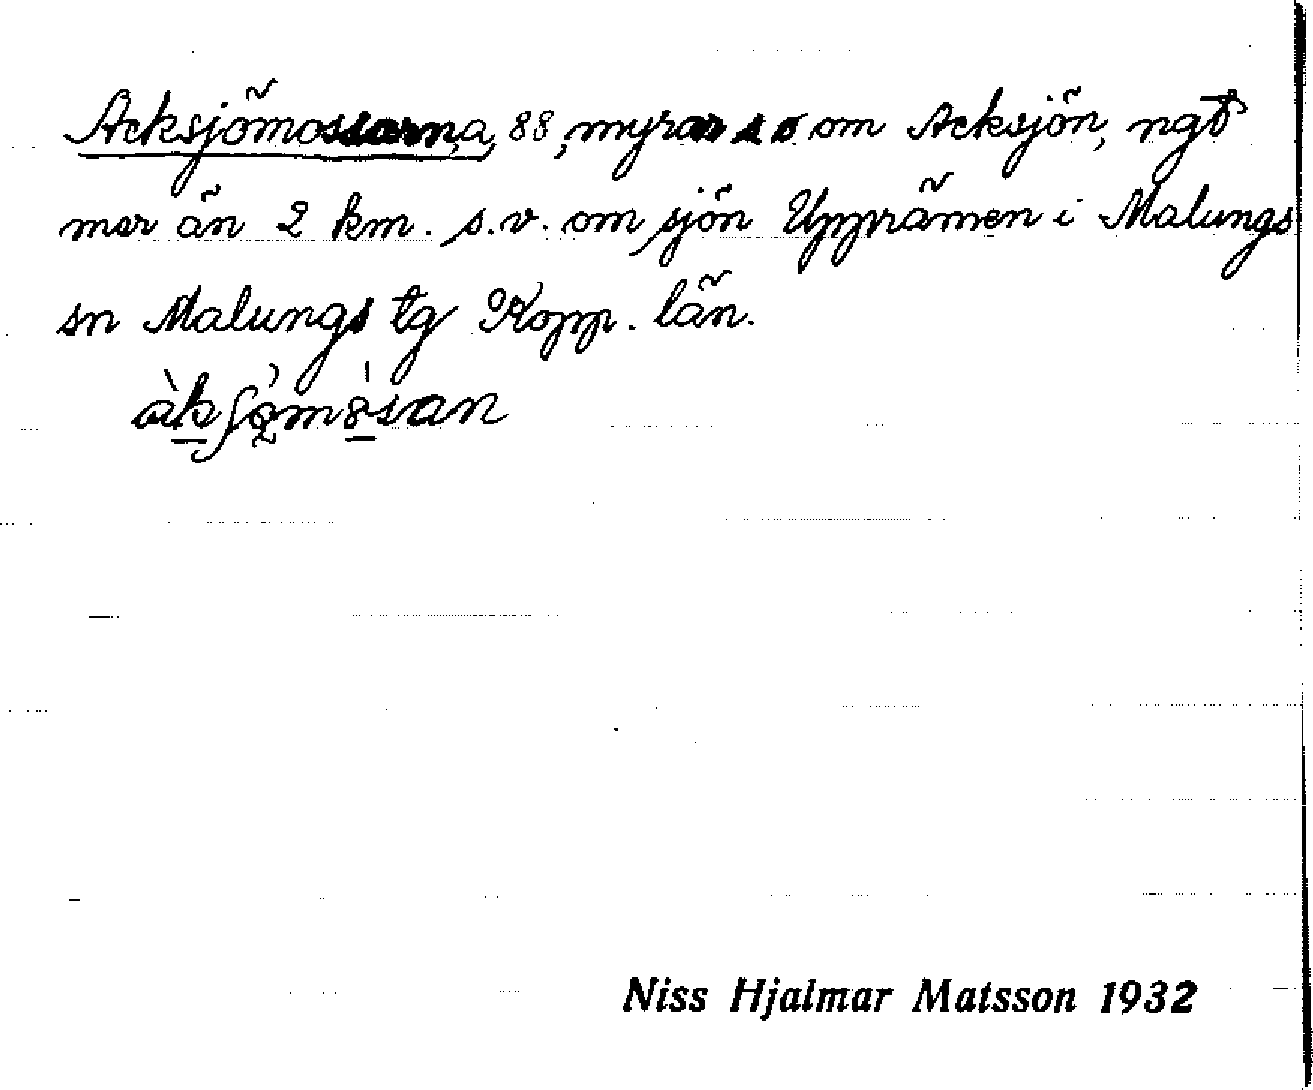 Acksjömossarna, 88, myrar s ö om Acksjön, ngt
mer än 2 km. s.v. om sjön Upprämen i Malungs
sn Malungs tg Kopp. län.
Niss Hjalmar Matsson 1932